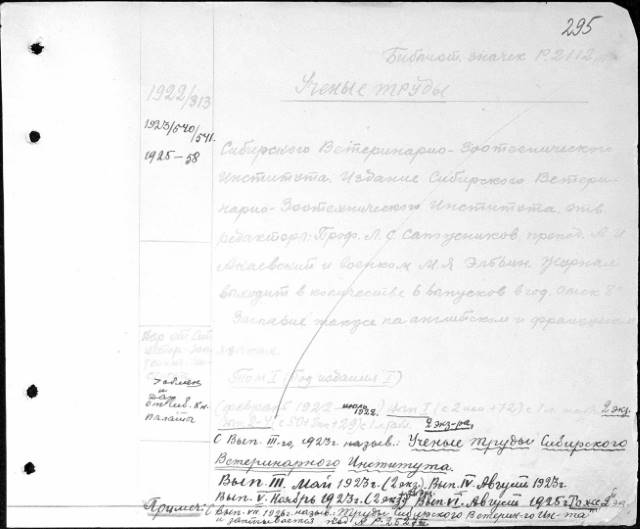 295
Библиот. значек Р.2112
Ученые труды
1922/313
1923/540/541.
1925—58
Сибирского Ветеринарно-Зоотехнического
Института. Издание Сибирского Ветери-
нарно-Зоотехнического Института. Отв.
редактора: Проф. Л. С. Сапожников, препод. А. И.
Акаевский и военком М. Я. Эльвин. Журнал
выходит в количестве 6 выпусков в год. Омск 8°
Заглавие также на английском и французском
языках.
Том I (Год издания I)
обмен
и
дар
палата
(февраль 1922—июль 1922.) вып I (с 2 нен. +72) с 1 л. табл. 2 экз.
2 экз-ра,
С Вып. III.го, 1923 г. назыв.: Ученые труды Сибирского
Ветеринарного Института.
Вып. III. Май 1923 г. (2 экз.) Вып. IV. Август 1923 г.
Вып. V. Ноябрь 1923 г. (2 экз.) Вып. VI. Август 1925 г.
Примеч:
С вып. VII. 1926 г. назыв. Труды Сибирского Ветерин-го Ин-та"
и записывается под